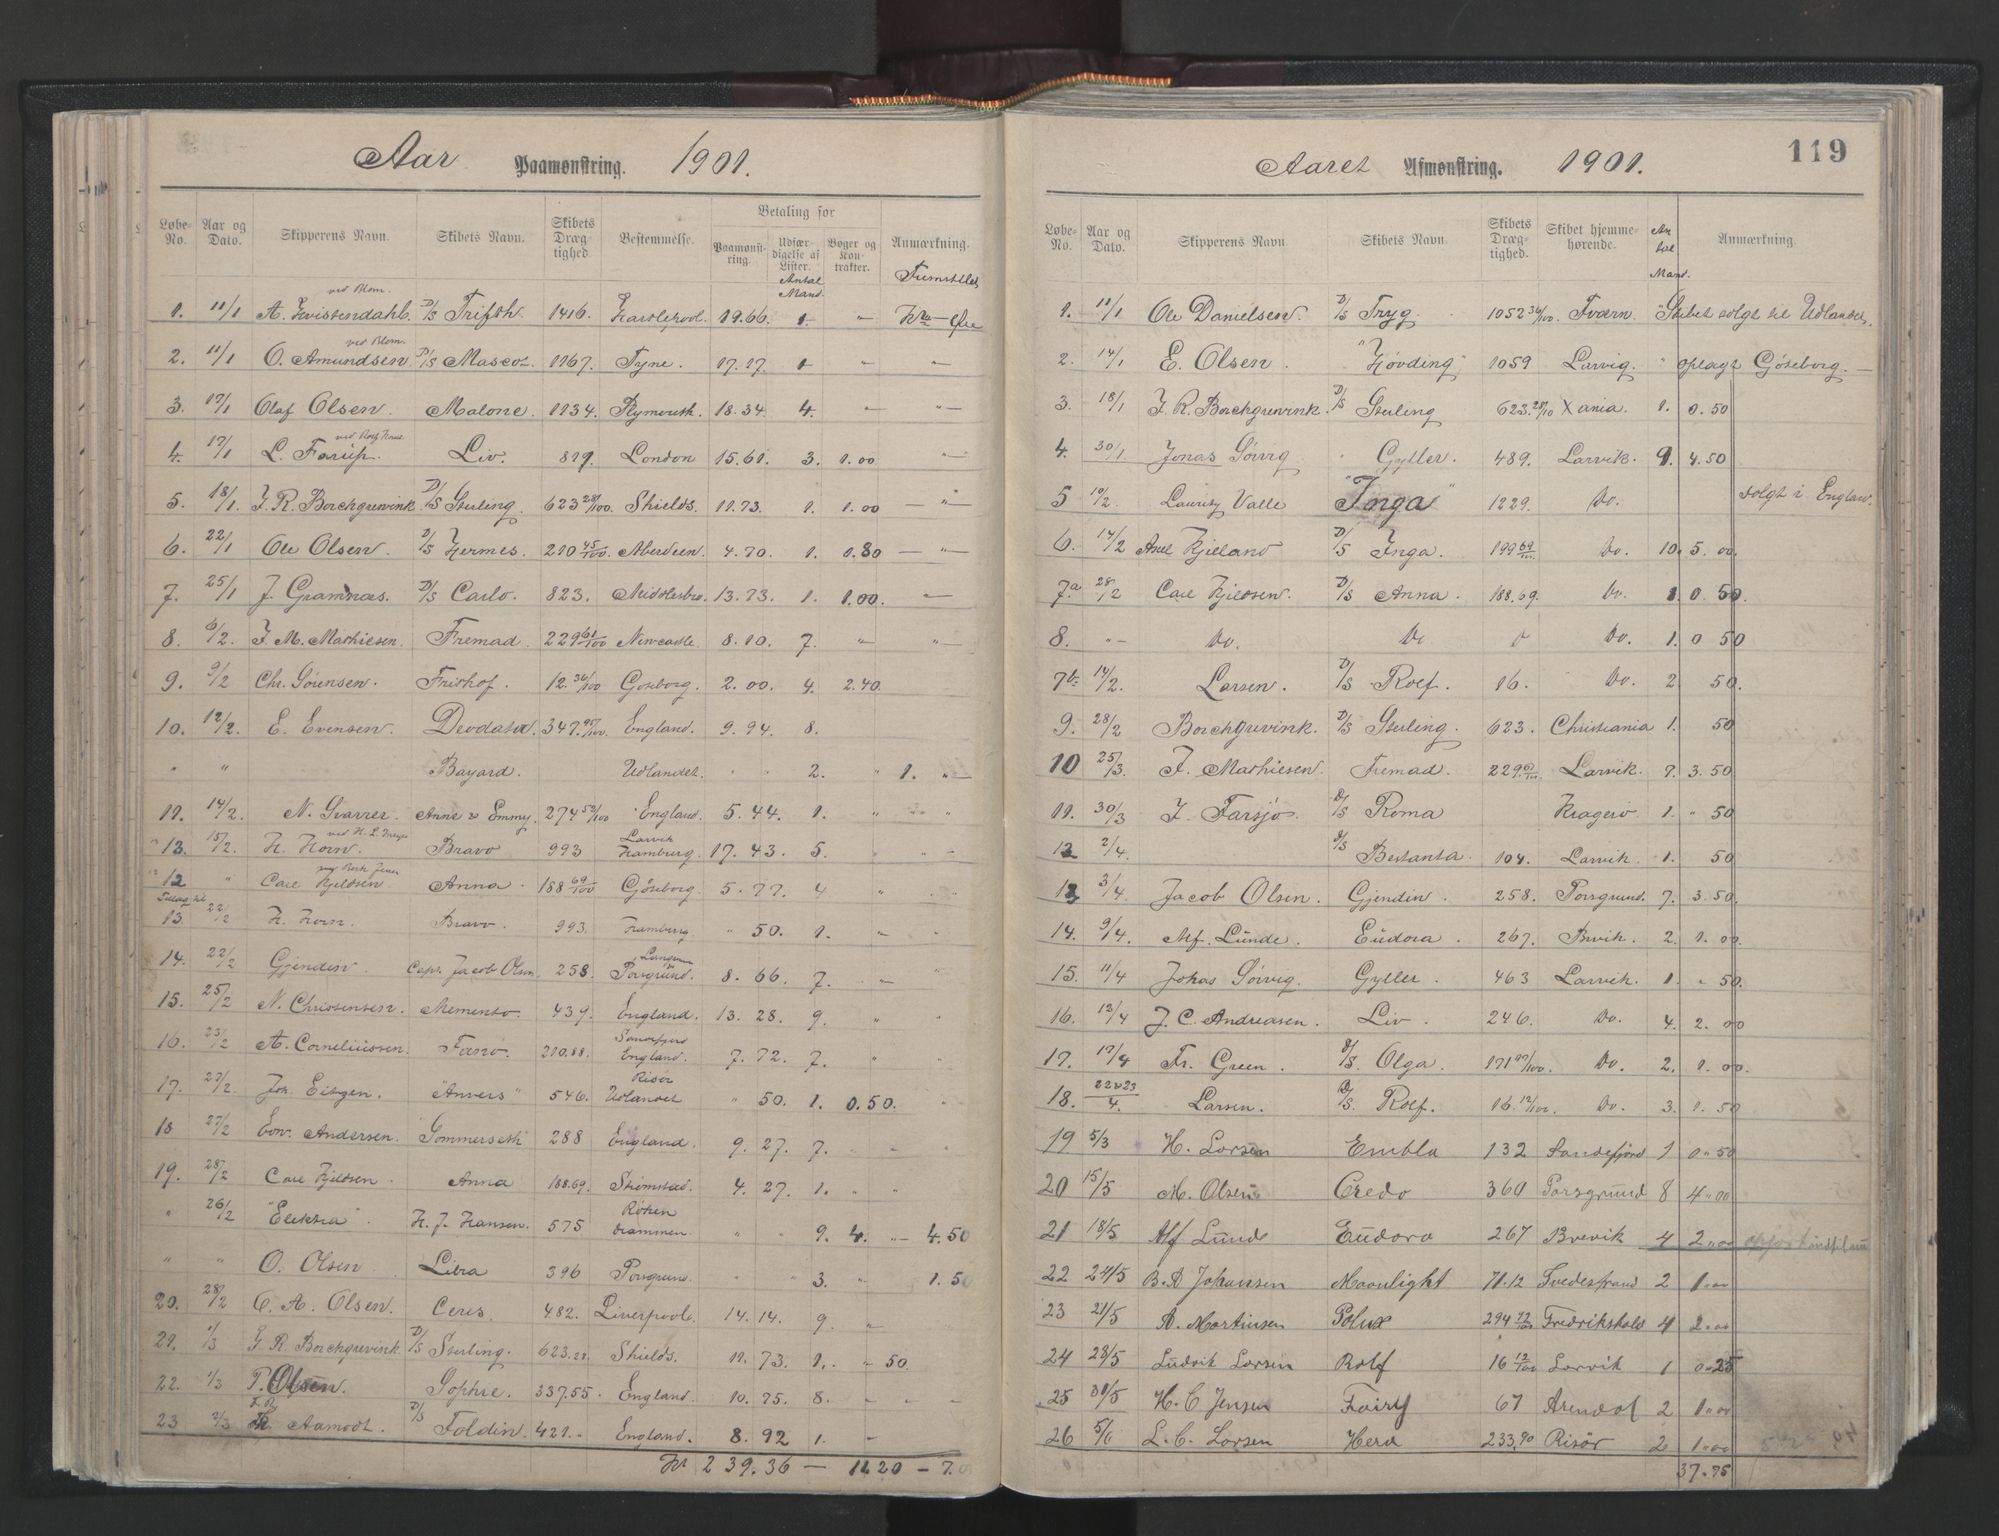 Aar Paamønstring. 1901.
Løbe-No. Aar og Dato. Skipperens Navn. Skibets Navn. Skibets Dræg-tighed Bestemmelse. Betaling for Paamønst-ring. Udfær-digelse af Lister. Bøger og Kon-trakter. Anmærkning.
Antal Mand
ved Blom.
1. 11/1 A. Hvistendahl. D/S Trifth. 1416. Hartlepool. 19.66. 1. "
ved Blom.
2. 11/1 O. Amundsen. D/S Mascot. 1167. Tyne. 17.17. 1 " "
3. 17/1 Olaf Olsen. Malone. 1134. Plymouth. 18.34. 4. " "
4. 17/1 L. Farup. Liv. 819. London 15.61. 3. 1.00 "
5. 18/1 J. R. Borchgrevink D/S Sterling. 623 28/100. Shields. 11.73. 1. 1.00 "
6. 22/1 Ole Olsen. D/S Hermes. 210 45/100. Aberdeen. 4.70. 1. 0.80 "
7. 25/1 J. Gramnæs. D/S Carlo. 823. Middlesbro. 13.73. 1. 1.00. "
8. 6/2. J. M. Mathiesen. Fremad. 229 61/100 Newcastle. 8.10. 7. " "
9. 9/2 Chr. Sørensen. Fridhof. 12. 36/100 Gøteborg. 2.00. 4. 2.40.
10. 12/2. E. Evensen. Deodata. 347. 95/100. England. 9.94. 8.
" " Bayard. Udlandet. " " 2. " 1. "
11. 14/2. N. Svarrer. Anne & Emmy. 274 52/100 England. 5.44. 1. " "
13. 15/2. H. Horn. Bravo 993 Larvik Hamburg. 17.43. 5. " "
12 " Carl Kjeldsen. Anna. 188 69/100 Gøteborg. 5.77. 4 " "
Tillæg til
13 22/2 H. Horn. Bravo. 993. Hamburg. " 50. 1. " "
14. 22/2 Gjendin. Capt. Jacob Olsen. 258. Langesun Porsgrund. 8.66. 7. "
15. 25/2 N. Christensen. Memento. 439. England. 13.28. 9. " "
16. 23/2 A. Corneliussen. Fanø. 210.88. Sandefjord England. 7.72. 7. "
17. 27/2 Joh. Eitzen. "Anvers" 546. Risør Udlandet " 50. 1. 0.50. "
18 27/2 Edv. Andersen. Sommerset 288 England. 9.27. 7. " "
19. 28/2 Carl Kjeldsen. Anna 188.69. Strømstad. 4.27. 1. " "
" 26/2 "Elektra". H. J. Hansen. 575 Røken Drammen. " " 9. 4. " 4.50
" " O. Olsen. Libra 396 Porsgrund. " " 3. " 1.50
20. 28/2 C. A. Olsen. Ceres. 482. Liverpool. 14.14. 9. "
21. 1/3 J. R. Borchgrevink D/S Sterling. 623.28 Shields. 11.73. 1. " 50.
22. 1/3 P. Olsen. Sophie. 337.55. England. 10.75. 8. " "
23 2/3 Aamodt. D/S Foldin. 421. England. 8.92 1. "
Kr 239.36 — 11.20 — 7.
Aaret Afmønstring. 1901. 119
Løbe-No. Aar og Dato. Skipperens Navn Skibets Navn Skibets Dræg-tighed. Skibet hjemme-hørende. An tal Mand. Anmærkning.
1. 11/1 Ole Danielsen. D/S Tryg. 1052 36/100. Tværn. "Skibet solgt til Udlandet.
2. 14/1 E. Olsen. "Høvding" 1059 Larvig. " oplagt Gøteborg. —
3. 18/1 J. R. Borchgrevink. D/S Sterling 623. 28/10 Xania. 1. 0.50
4. 30/1 Jonas Sørvig Gyller. 489. Larvik. 9. 4.50
5 10/2 Lauritz Valle "Inga" 1229. Do. solgt i England.
6. 14/2 Axel Kjeland D/S Inga. 199 69/100. Do. 10. 5.00.
7.a 28/2 Carl Kjeldsen. D/S Anna. 188.69. Do. 1. 0.50.
8. " Do. Do Do. 1. 0 50
7b 14/2. Larsen. D/S Rolf. 16. Do. 2 50.
9. 28/2 Borchgrevink. D/S Sterling. 623. Christiania 1. 50
10 25/3. J. Mathiesen. Fremad. 229. 61/100. Larvik. 7. 3.50
11. 30/3 J. Farsjø. D/S Roma Kragerø. 1. " 50
12 2/4. D/S Bestanta. 104. Larvik. 1. 50
13 3/4 Jacob Olsen. Gjendin. 258. Porsgrund. 7. 3.50.
14. 9/4. Alf. Lunde. Eudora. 267. Brvik. 2. 1.00.
15. 11/4 Johas Sørvig. Gyller. 463 Larvik. 1. " 50.
16. 12/4 J. C. Andreasen. Liv. 246. Do. 4. 2.00
17. 17/4 Fr. Green. D/S. Olga. 171 97/100. Do. 2. 1.00.
18. 22 & 23/4. Larsen. D/S. Rolf. 16. 12/100. Do. 3. 1.50
19 5/3 H. Larsen Embla 132 Sandefjord 1 0 " 50
20 15/5 M. Olsen Credo 360 Porsgrund 8 4 " 00
21 18/5 Alf Lunde Eudora 267 Brevik 4 2 " 00
22 24/5 B. A Johansen Moonlight 71.12 Tvedestrand 2 1 " 00
23 21/5 A. Martinsen Polux 294 72/100 Fredrikshald 4 2 " 00
24 28/5 Ludvik Larsen Rolf 16 12/100 Larvik 1 0 " 25
25 31/5 H. C Jensen Fairy 67 Arendal 2 1 " 00
26 5/6 L. C. Larsen Hera 233,90 Risør 2 1 " 00
37.75